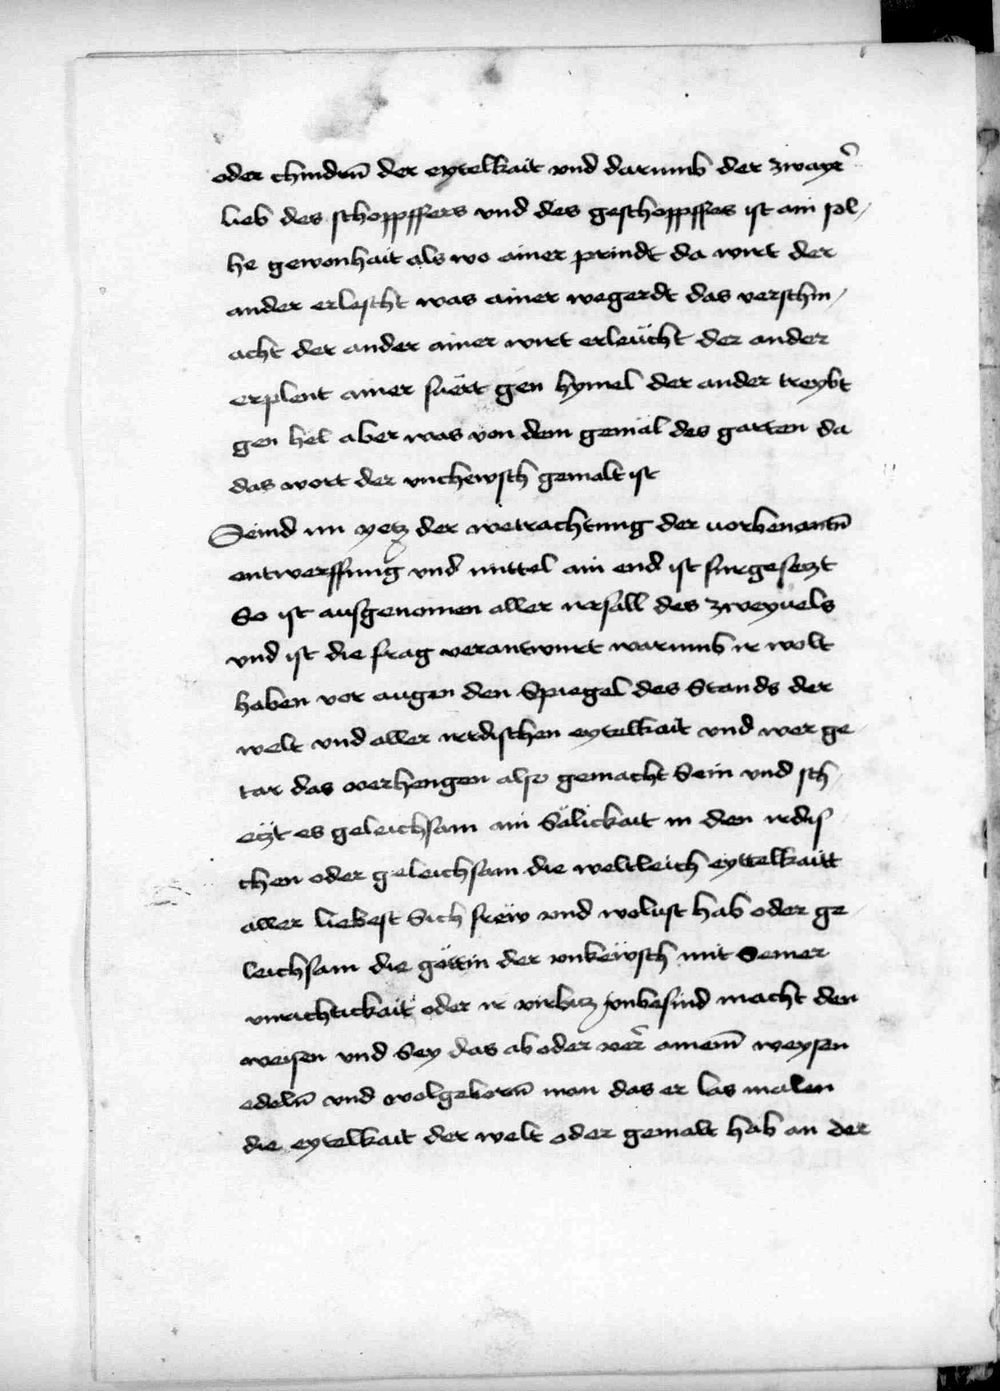 oder chindrn̄ der eytelkait vnd darumb der zwayr̄
lieb des schoppffers vnd des geschoppffes ist ain sol⸗
he gewonhait als wo ainer prindt da wirt der
ander erlescht was ainer wegerdt das verschm⸗
acht der ander ainer wirt erleücht der ander
erplent ainer füert gen hymel der ander treybt
gen hel aber was von dem gemäl des garten da
das wort der vnchewsch gemalt ist
Seind nu yetz der wetrachtung der vorbenantn̄
entwerffung vnd mittel ain end ist furgesetzt
So ist ausgenomen aller irrsall des zweyuels
vnd ist die frag verantwurt warumb ir wolt
haben vor augen den Spiegel des Stands der
welt vnd aller irrdischen eytelkait vnd wer ge⸗
tar das verhengen also gemacht Sein vnd sch⸗
etzt es geleichsam ain Sälickait in den irdis⸗
chen oder geleichsam die weltleich eyttelkaitt
aller liebest Sich frew vnd wolust hab oder ge⸗
leichsam die göttin der vnkewsch mit Seiner
vnrichtickait oder ir vnbesind macht den
weisen vnd Sey das ab oder ainem̄ weysen
edeln̄ vnd wolgeborn̄ man das er las malen
die eytelkait der welt oder gemalt hab an der